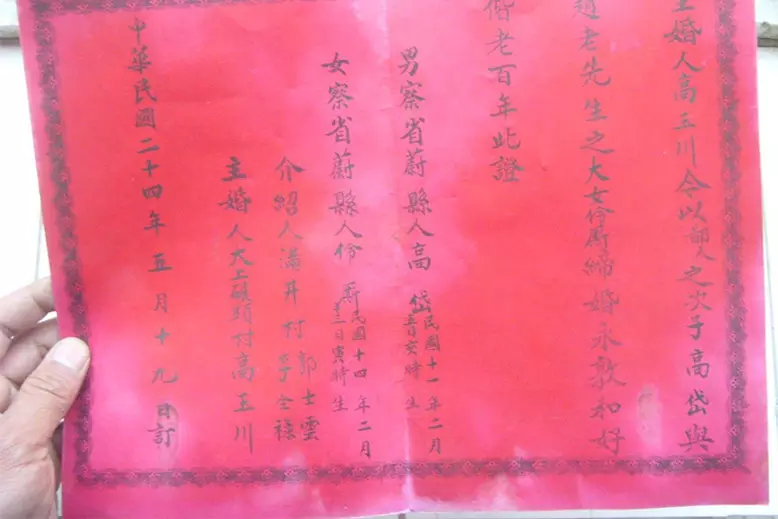 主婚人高玉川今以鄙人之次子高岱與
趙老先生之大女伶斯締婚永敦和好
偕老百年此證
男察省蔚縣人高岱民國十一年二月
五日亥時生
女察省蔚縣人伶斯民國十四年二月
日寅時生
介紹人滿井村郭士雲
李全祿
主婚人大上碾頭村高玉川
中華民國二十四年五月十九日訂